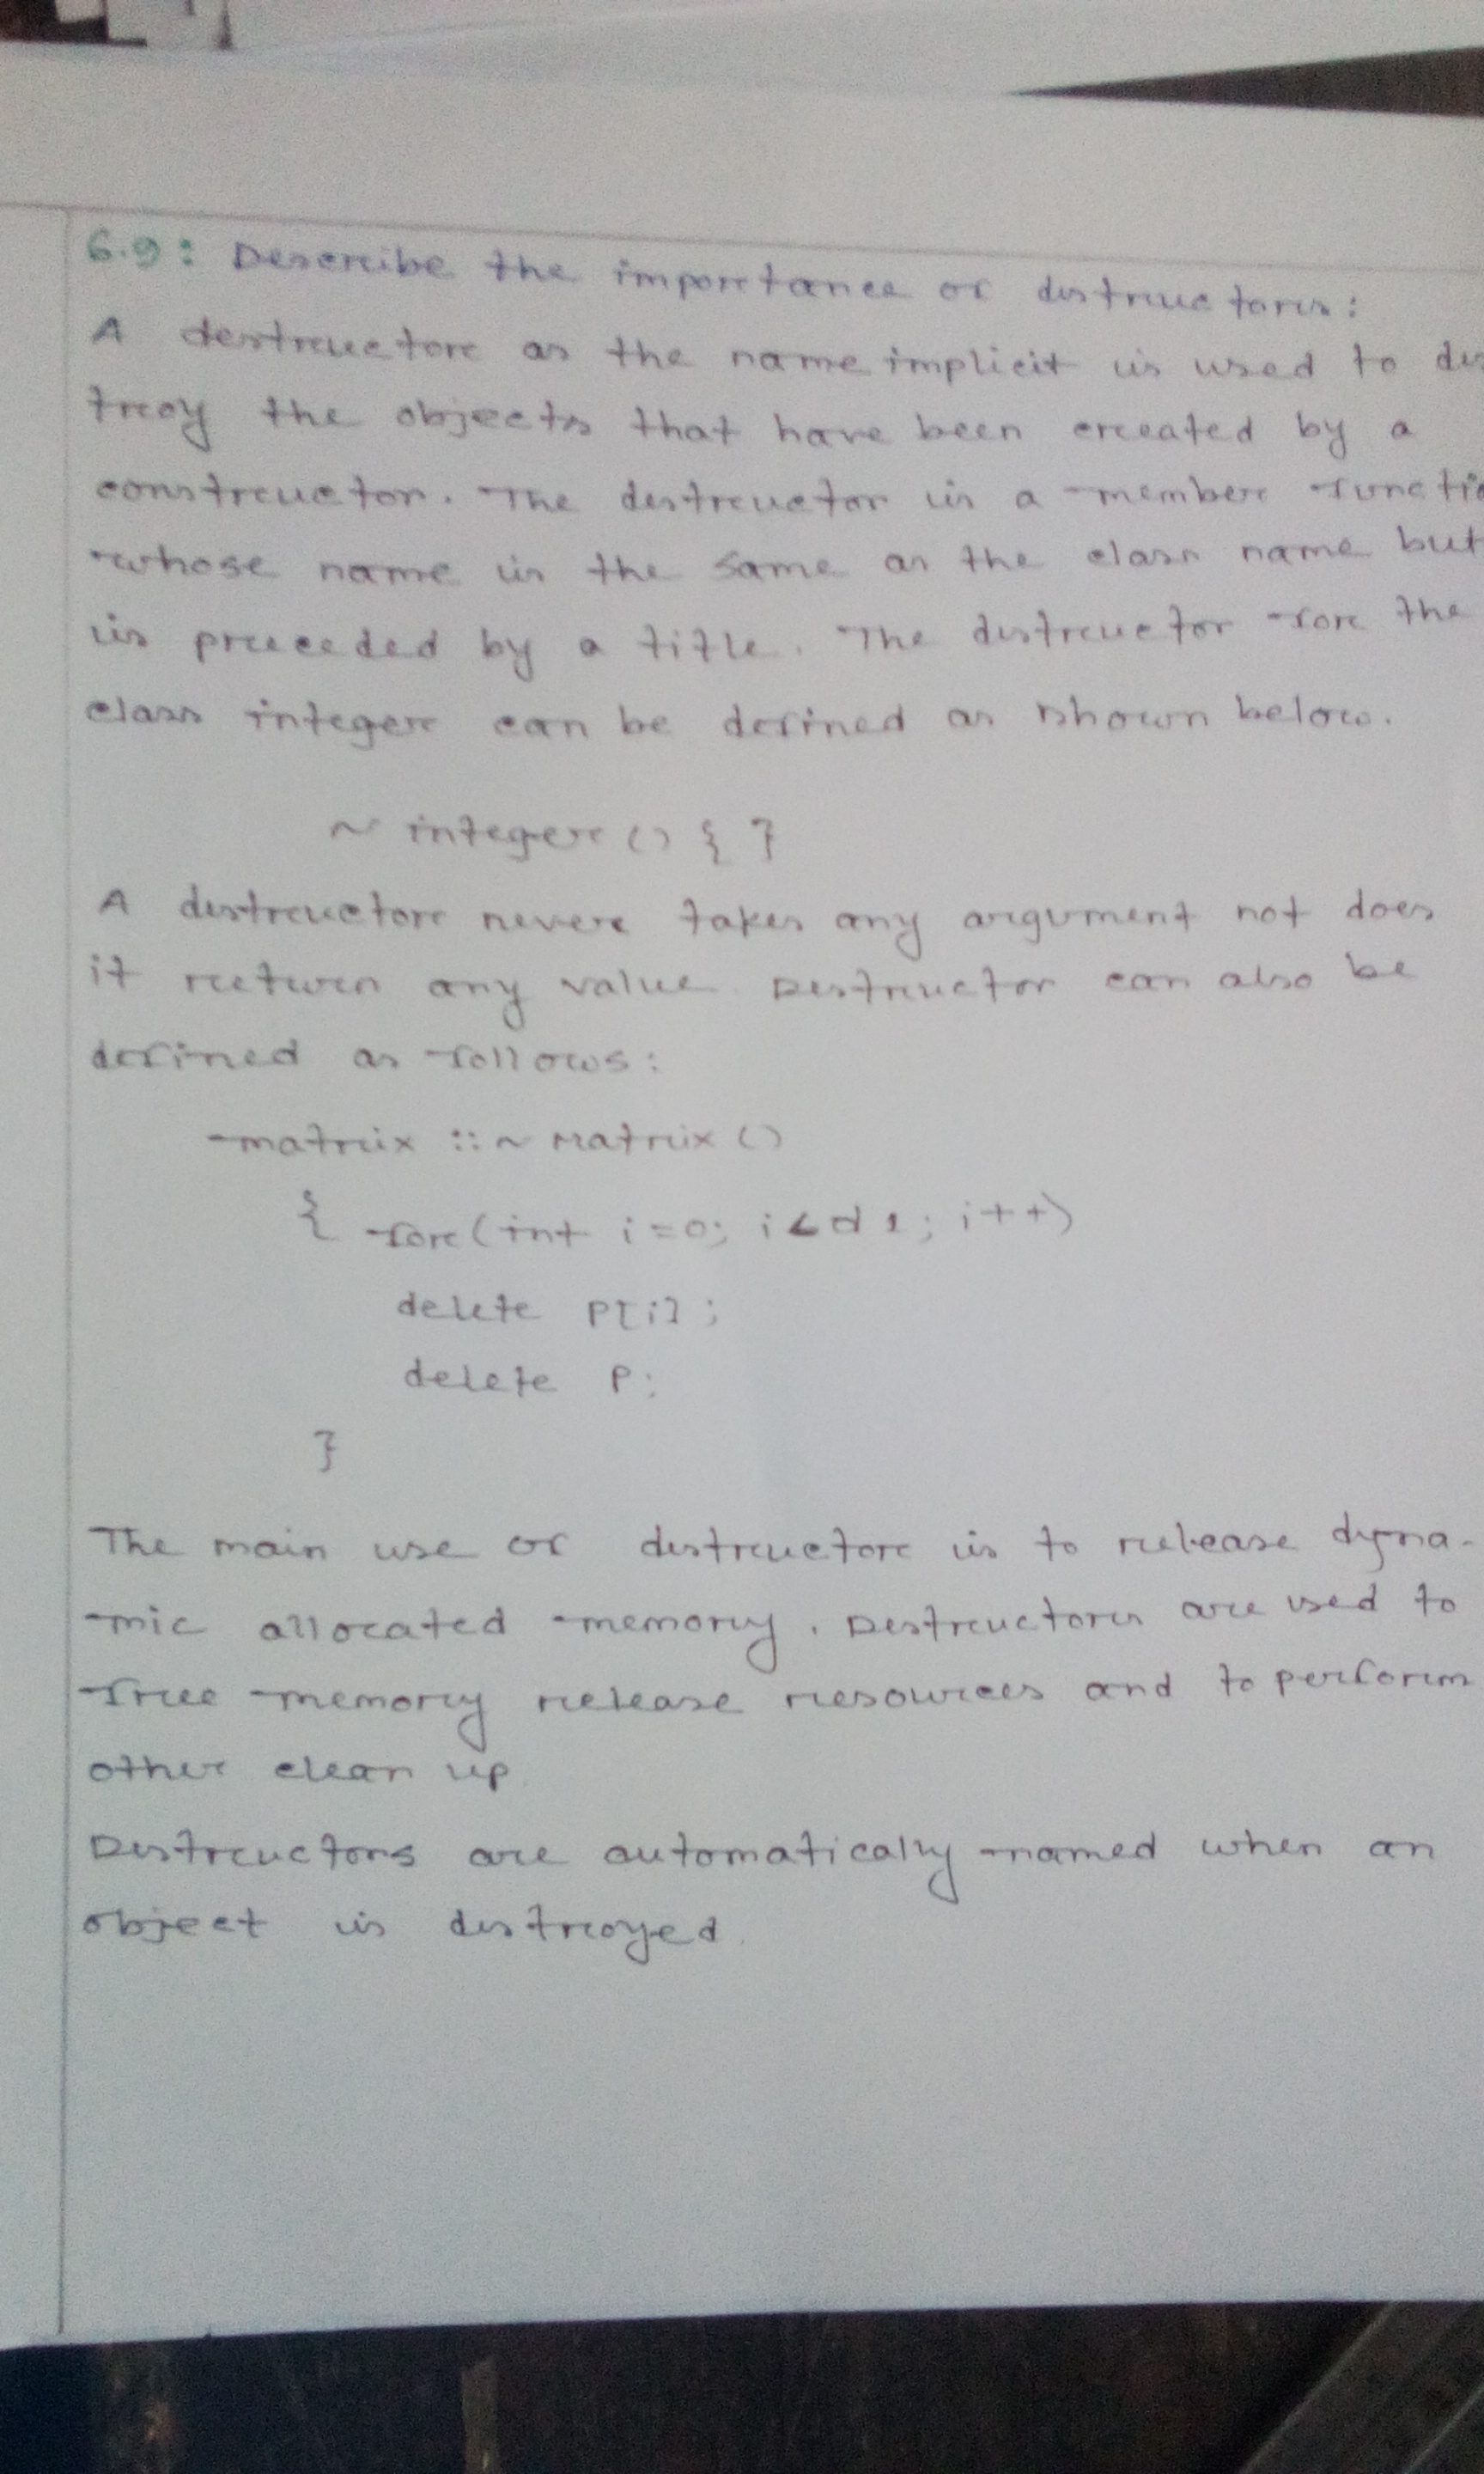 6.9: Describe the importance of distructors:
A destructor as the name implicit is used to des
troy the objects that have been created by a
constructor. The destructor is a member functio
whose name is the same as the class name but
is preceded by a title. The distructor for the
class integer can be defined as shown below.
~ integer () { }
A distructor never takes any argument not does
it return any value. Destructor can also be
defined as follows:
matrix :: ~ Matrix ()
{ for (int i=0; i<d1; i++)
delete P[i];
delete P;
}
The main use of distructor is to release dyna-
mic allocated memory. Destructors are used to
free memory release resources and to perform
other clean up.
Distructors are automatically named when an
object is distroyed.